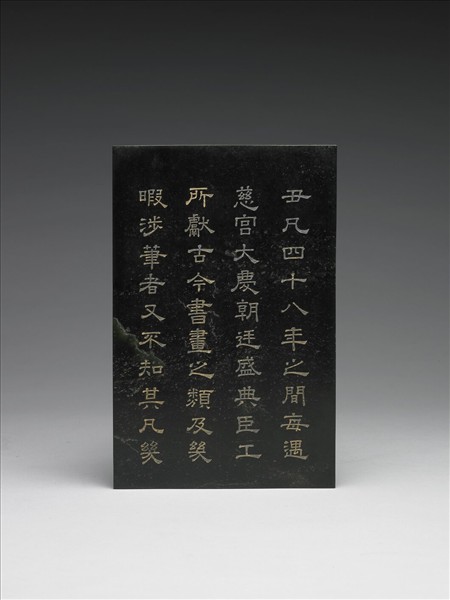 丑凡四十八年之間每遇
慈宮大慶朝廷盛典臣工
所獻古今書畫之類及幾
暇涉筆者又不知其凡幾